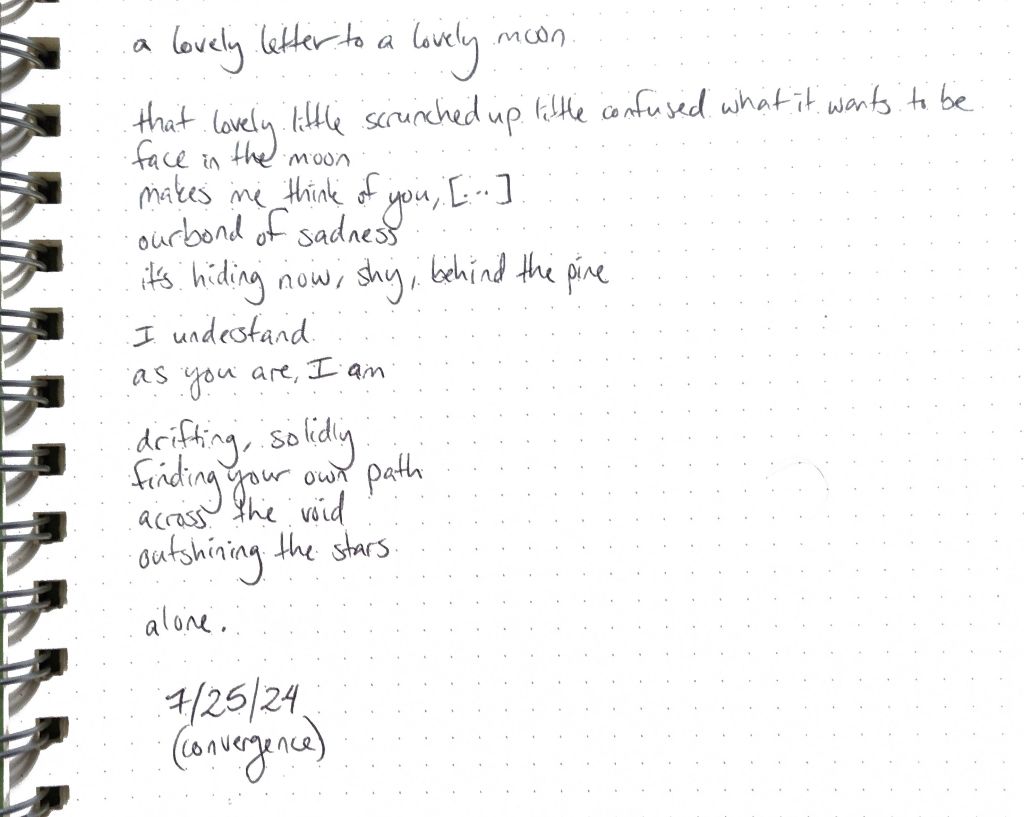 a lovely letter to a lovely moon
that lovely little scrunched up little confused what it wants to be
face in the moon
makes me think of you, [...]
our bond of sadness
it's hiding now, shy, behind the pine
I understand
as you are, I am
drifting, solidly
finding your own path
across the void
outshining the stars
alone.
7/25/24
(convergence)